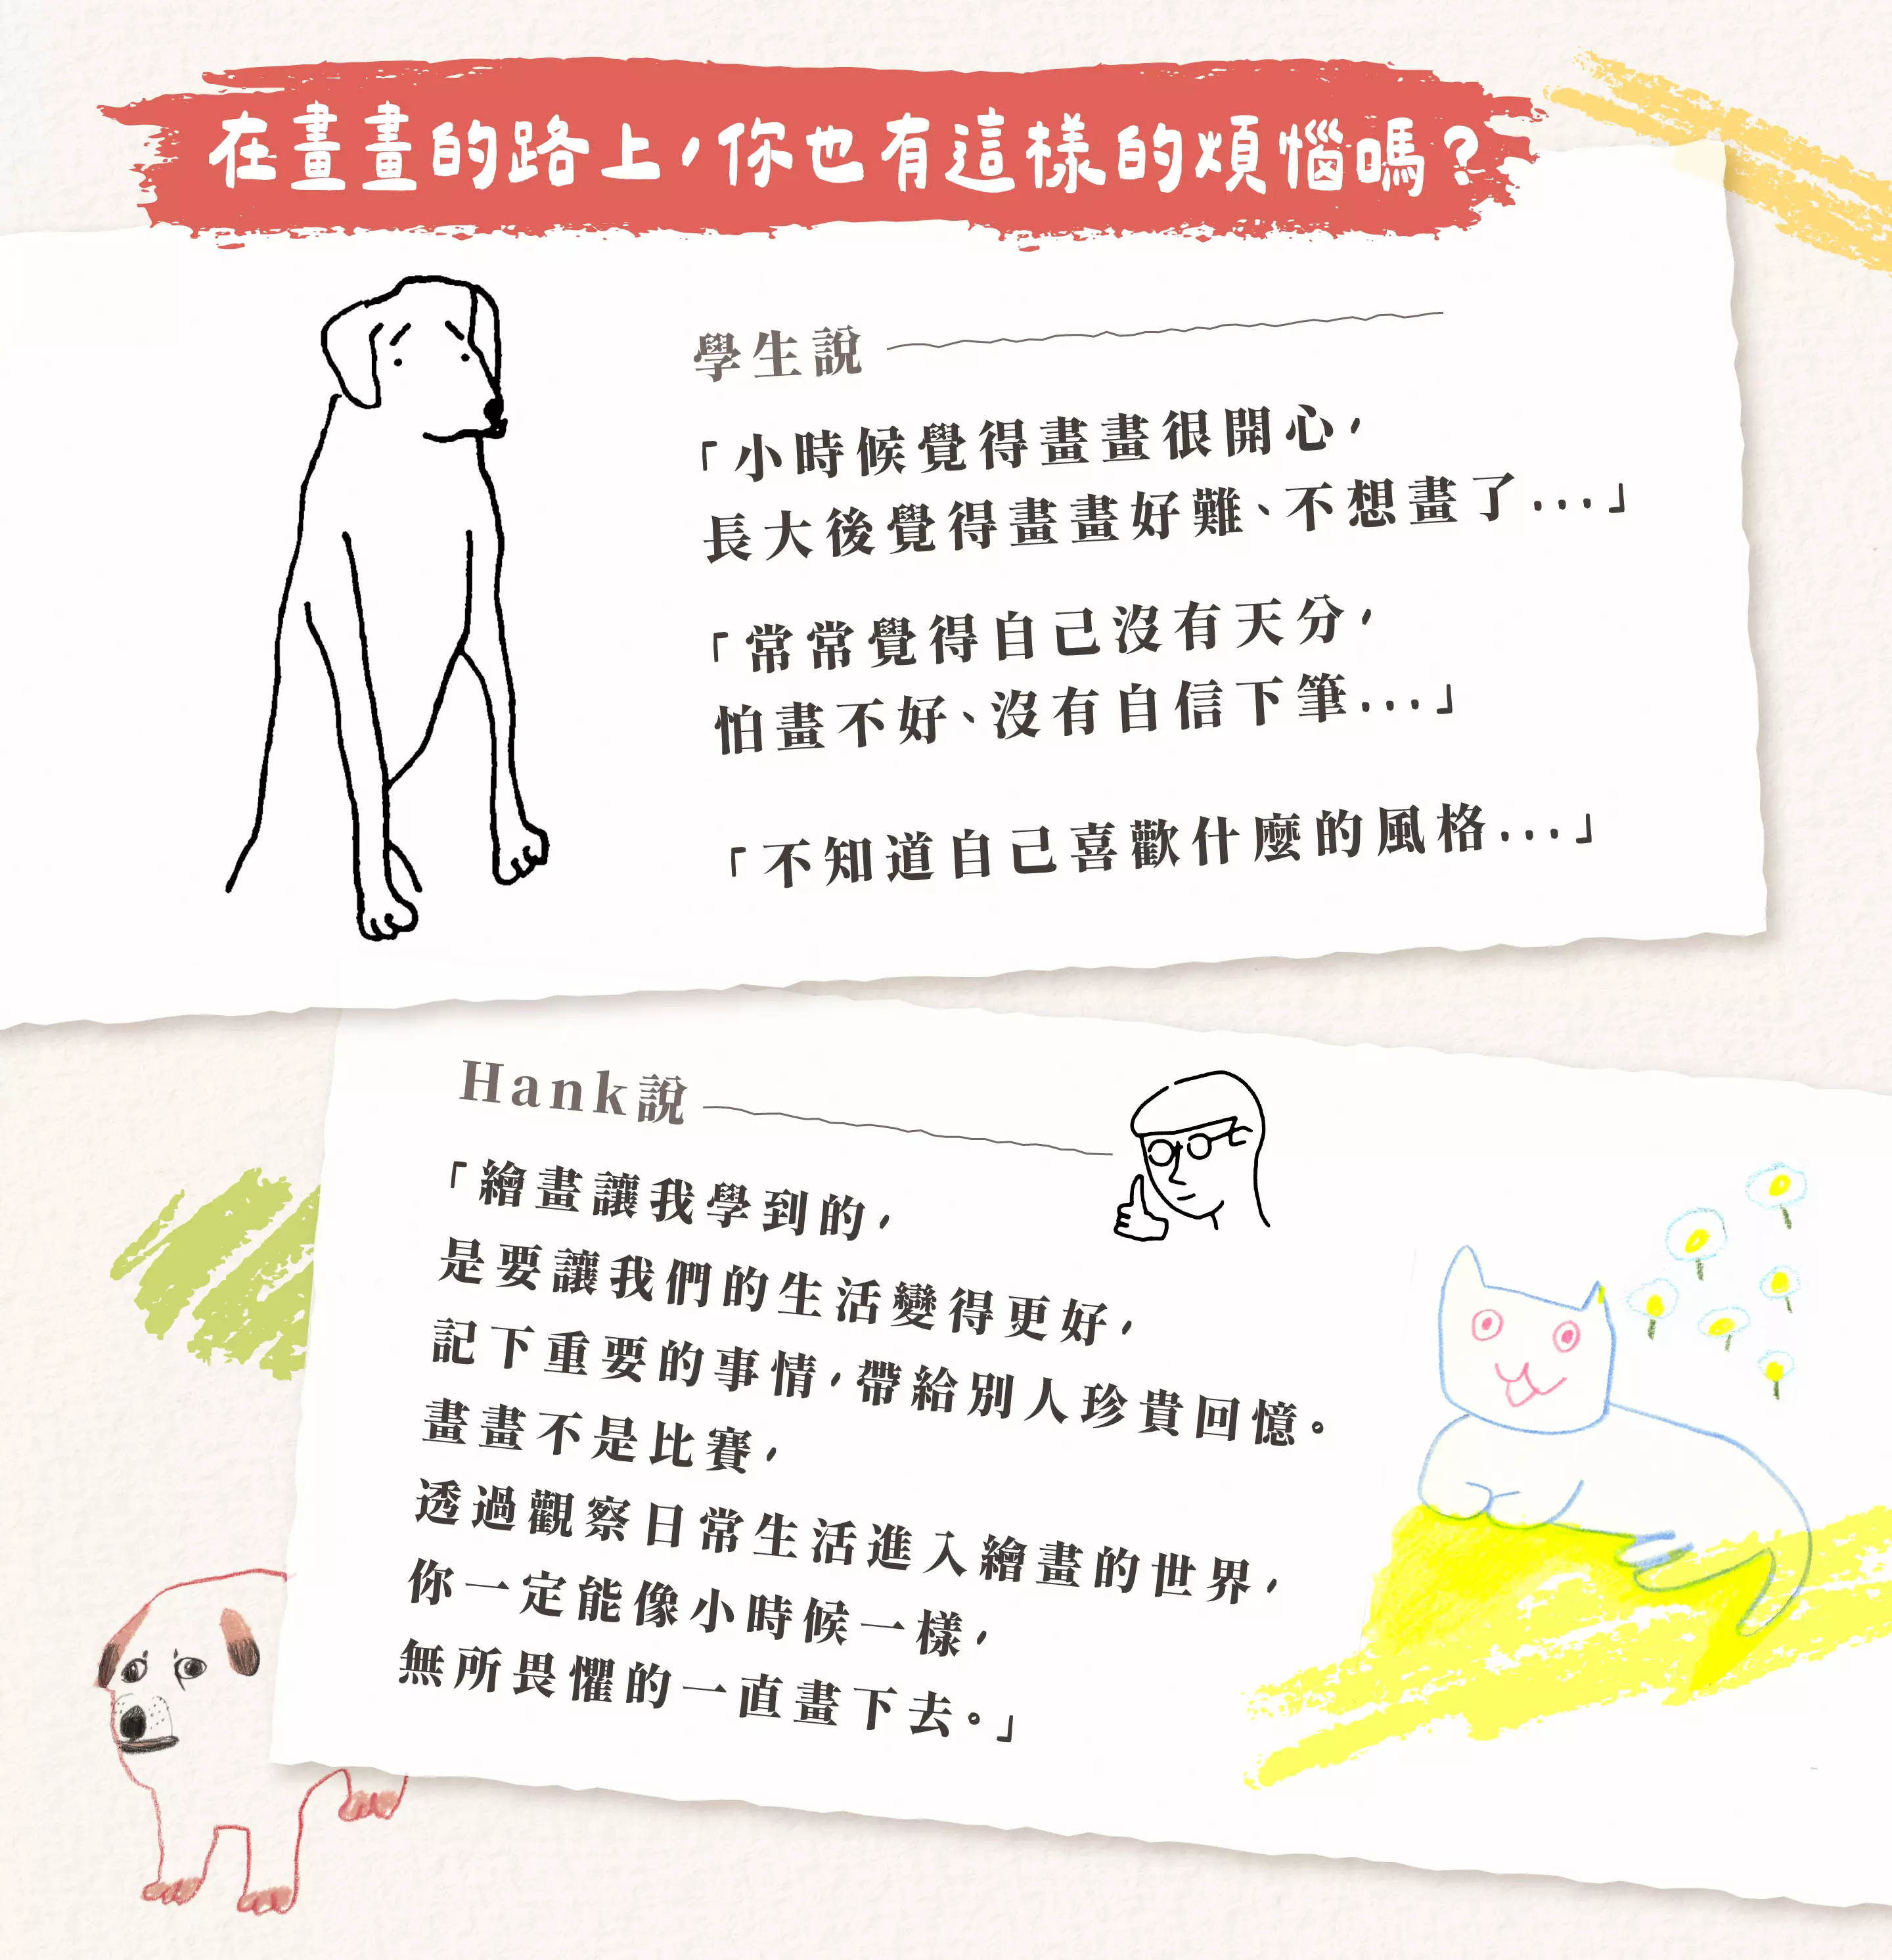 在畫畫的路上，你也有這樣的煩惱嗎？
學生說
「小時候覺得畫畫很開心，
長大後覺得畫畫好難、不想畫了...」
「常常覺得自己沒有天分，
怕畫不好、沒有自信下筆...」
「不知道自己喜歡什麼的風格...」
Hank說
「繪畫讓我學到的，
是要讓我們的生活變得更好，
記下重要的事情，帶給別人珍貴回憶。
畫畫不是比賽，
透過觀察日常生活進入繪畫的世界，
你一定能像小時候一樣，
無所畏懼的一直畫下去。」